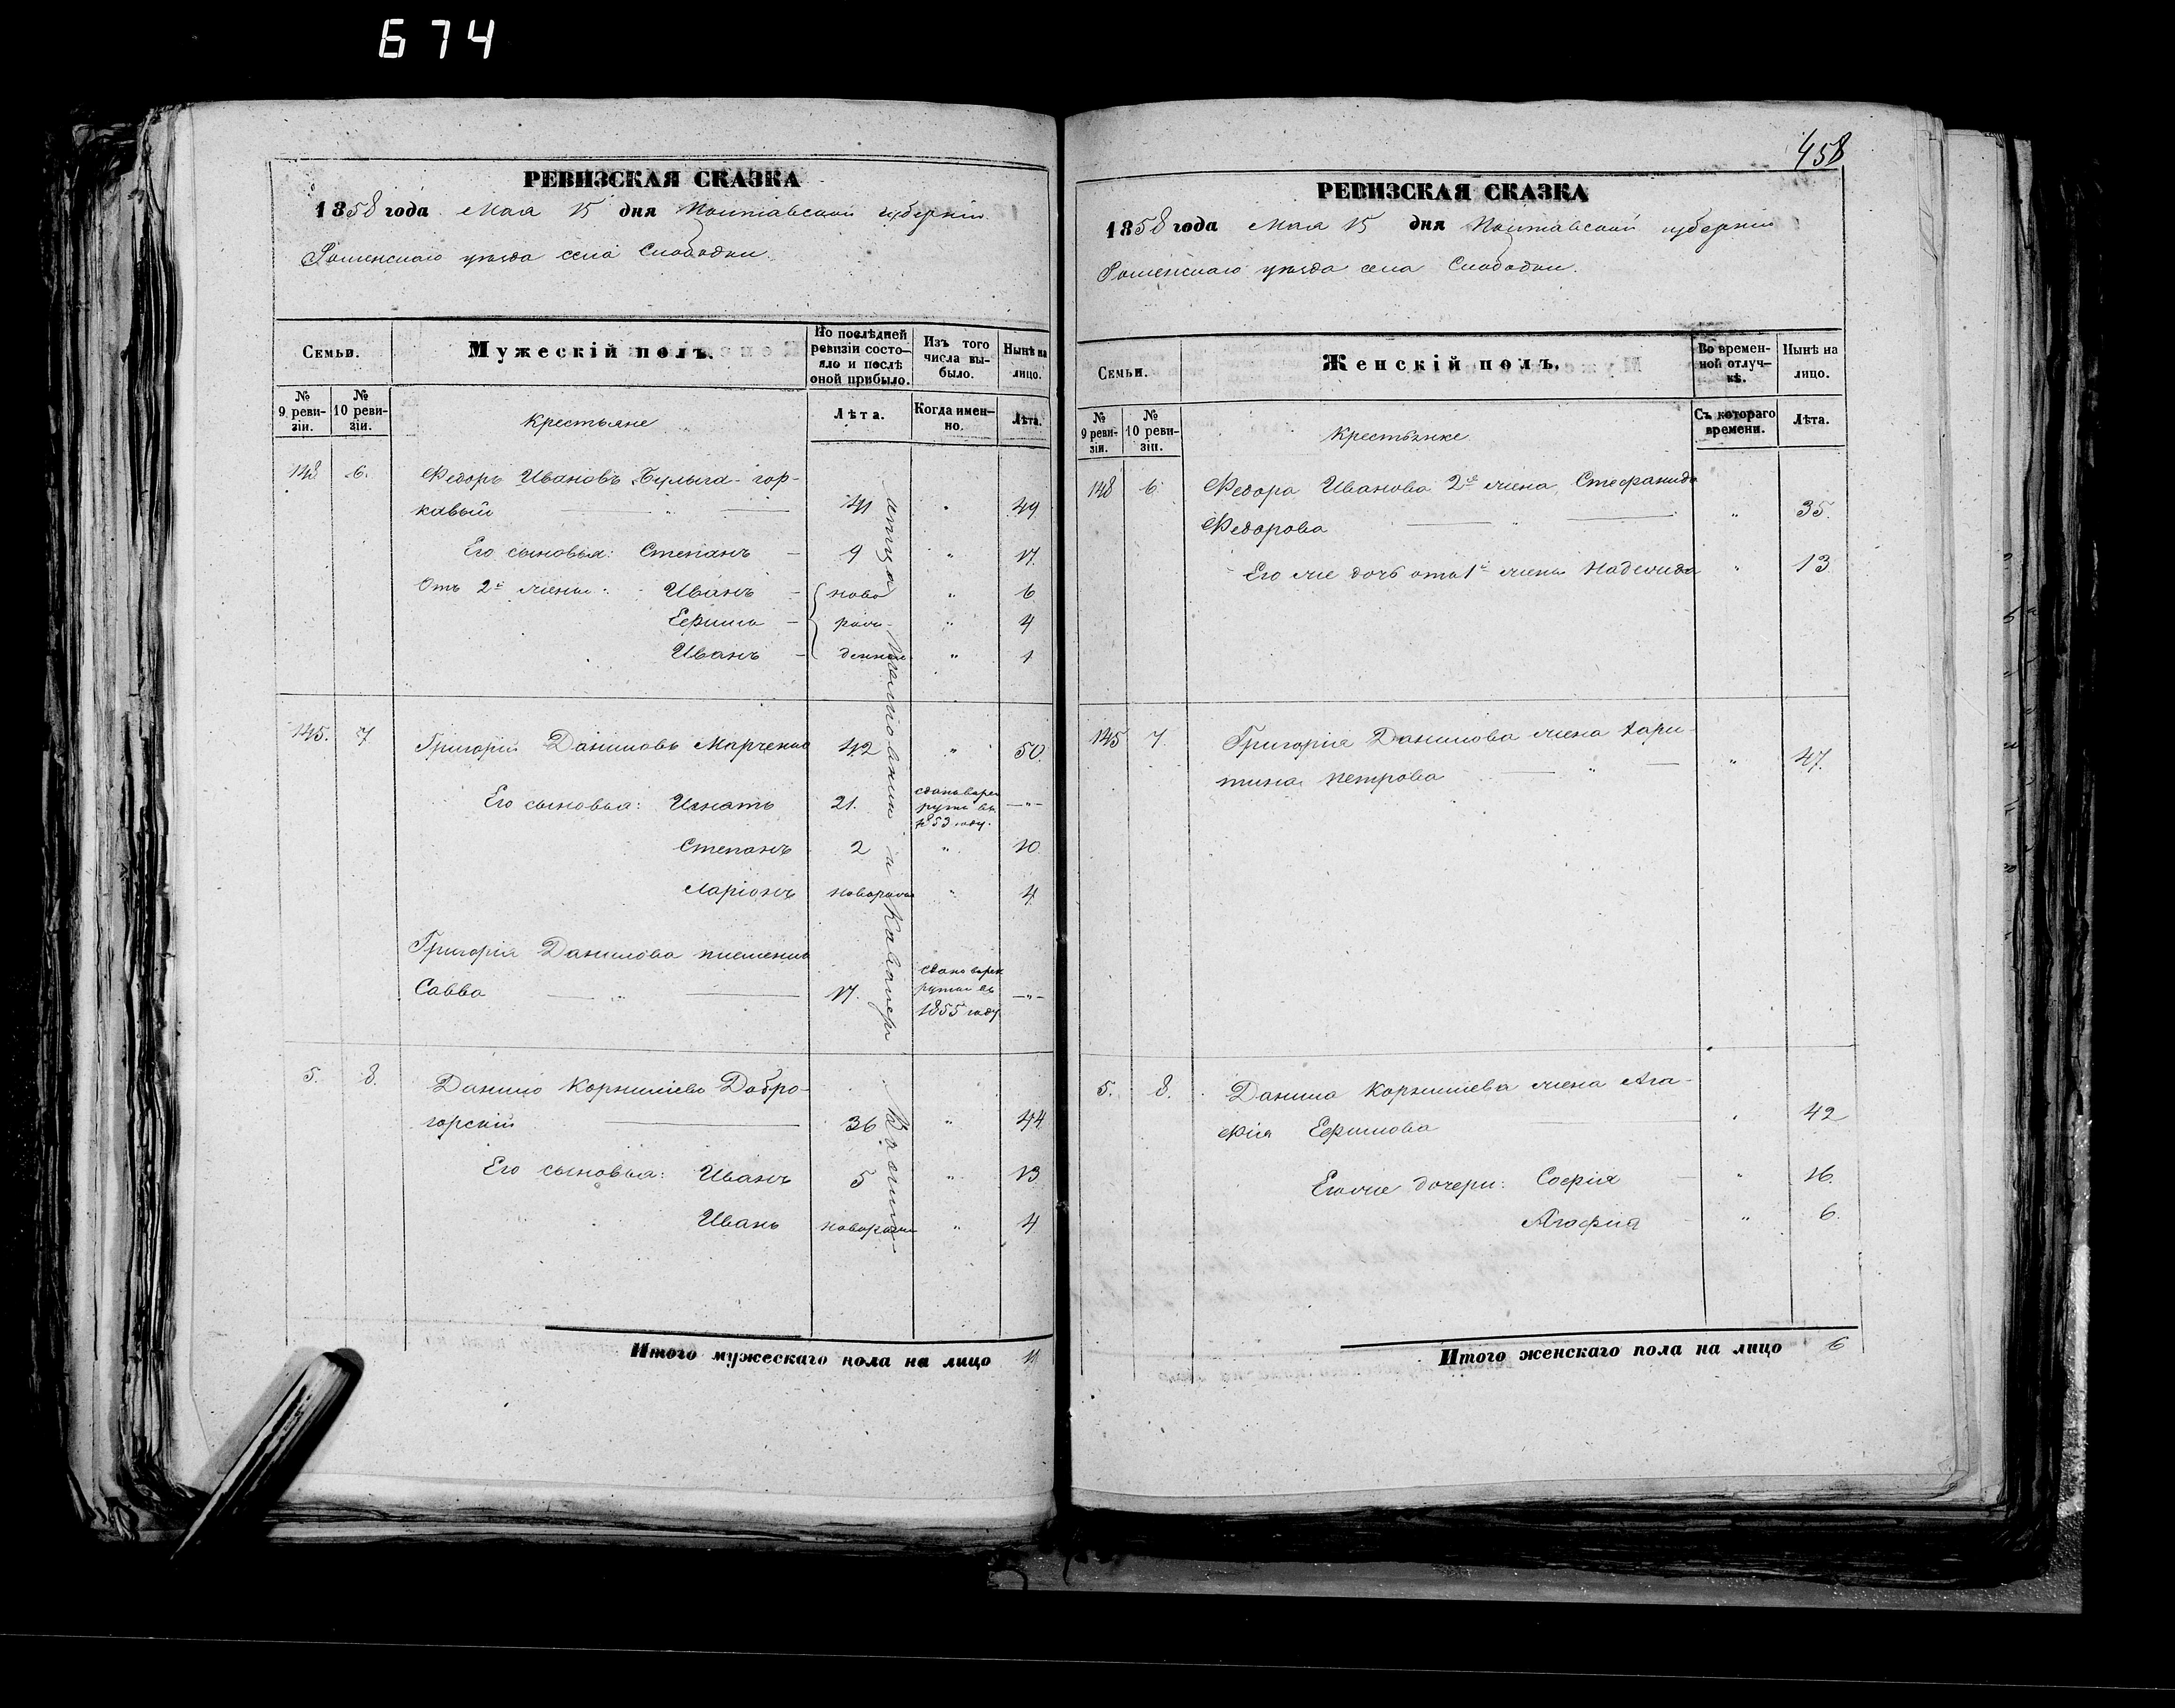 674
РЕВИЗСКАЯ СКАЗКА
1858 года Мая 15 дня Полтавской губерніи
Роменскаго уѣзда села Слободки.
Семьи.
Мужескій полъ.
По послѣдней ревизіи состояло и послѣ оной прибыло.
Изъ того числа выбыло.
Нынѣ на лицо.
№ 9 ревизіи.
№ 10 ревизіи.
Крестьяне
Лѣта.
Когда именно.
Лѣта.
148 6. Федоръ Ивановъ Булыга-гор-
кавый — " — 41 " 49
Его сыновья: Степанъ — 9 " 17
Отъ 2й жены: Иванъ — ново " 6
Ефимъ — рож- " 4
Иванъ — денные " 1
145. 7 Григорій Даниловъ Марченко 42 " 50.
Его сыновья: Игнатъ 21. сданъ в рек
руты въ —"—
1853 году.
Степанъ 2 " 10.
Ларіонъ новорож " 4
Григорія Данилова племяникъ
Савва — " — 17. сданъ в рек
руты въ —"—
1855 году
5. 8. Данило Корниліевъ Добро-
горскій — 36 " 44
Его сыновья: Иванъ 5 " 13
Иванъ новорожд " 4
Итого мужескаго пола на лицо 11
458
РЕВИЗСКАЯ СКАЗКА
1858 года Мая 15 дня Полтавской губерніи
Роменскаго уѣзда села Слободки.
Семьи.
Женскій полъ.
Во временной отлучкѣ.
Нынѣ на лицо.
№ 9 ревизіи.
№ 10 ревизіи.
Крестьянке
Съ котораго времени.
Лѣта.
148 6. Федора Иванова 2я жена, Стефанида
Федорова — " — " 35.
Его же дочь отъ 1й жены Надежда " 13
145 7. Григорія Данилова жена Хари-
тина Петрова — " — " 47.
5. 8. Данила Корниліева жена Ага-
фія Ефимова " 42
Его же дочери: Софія — " 16.
Агафія — " 6.
Итого женскаго пола на лицо 6